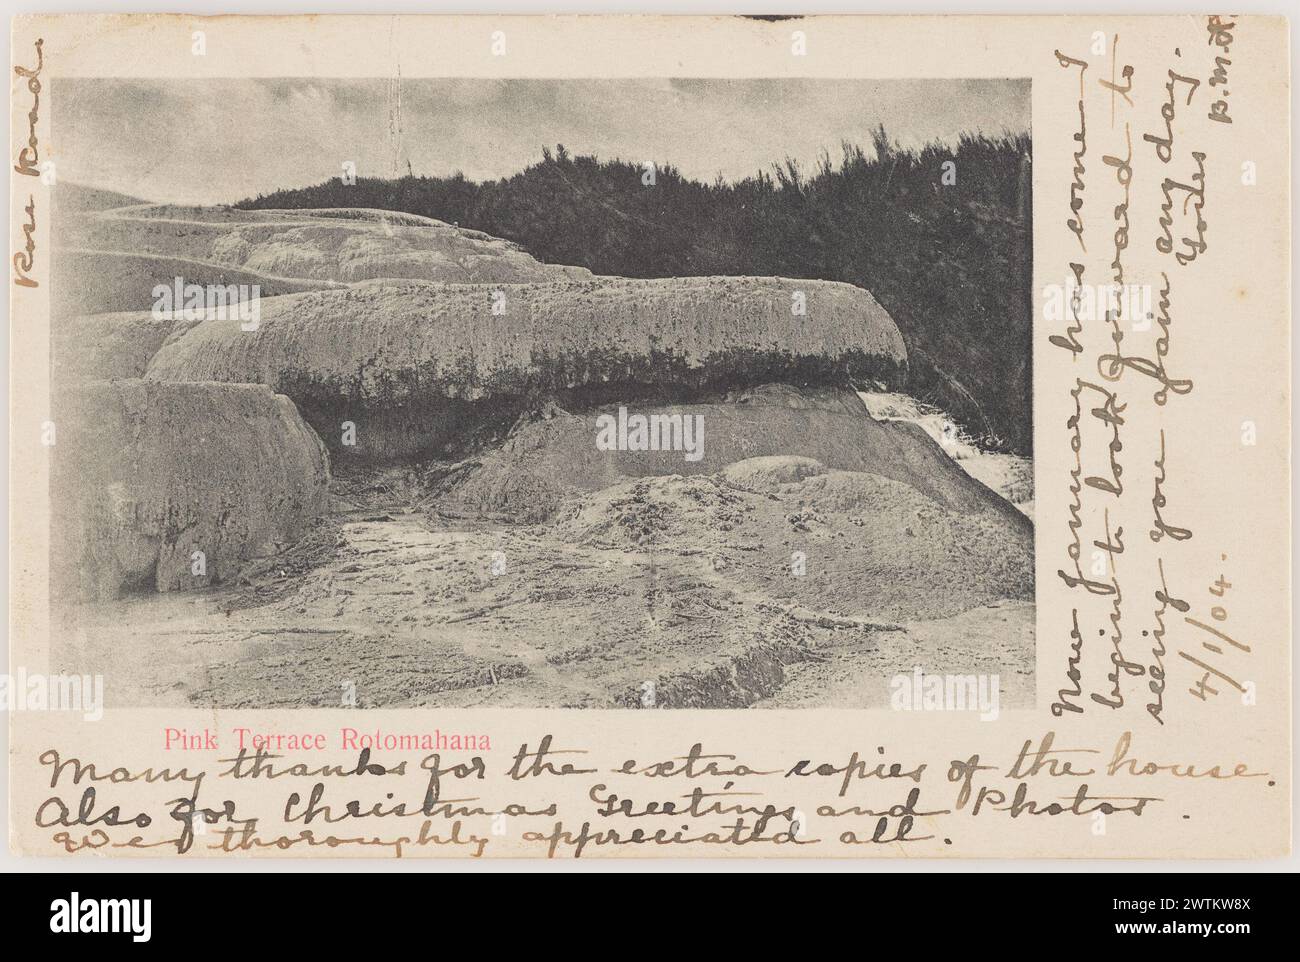 Rosa Road.
Pink Terrace Rotomahana
Many thanks for the extra copies of the house.
Also for Christmas Greetings and Photos.
We thoroughly appreciated all.
Now January has come I
begin to look forward to
seeing you again any day.
4/1/04.
Yours B.M.A
alamy
Image ID: 2WTKW8X
www.alamy.com